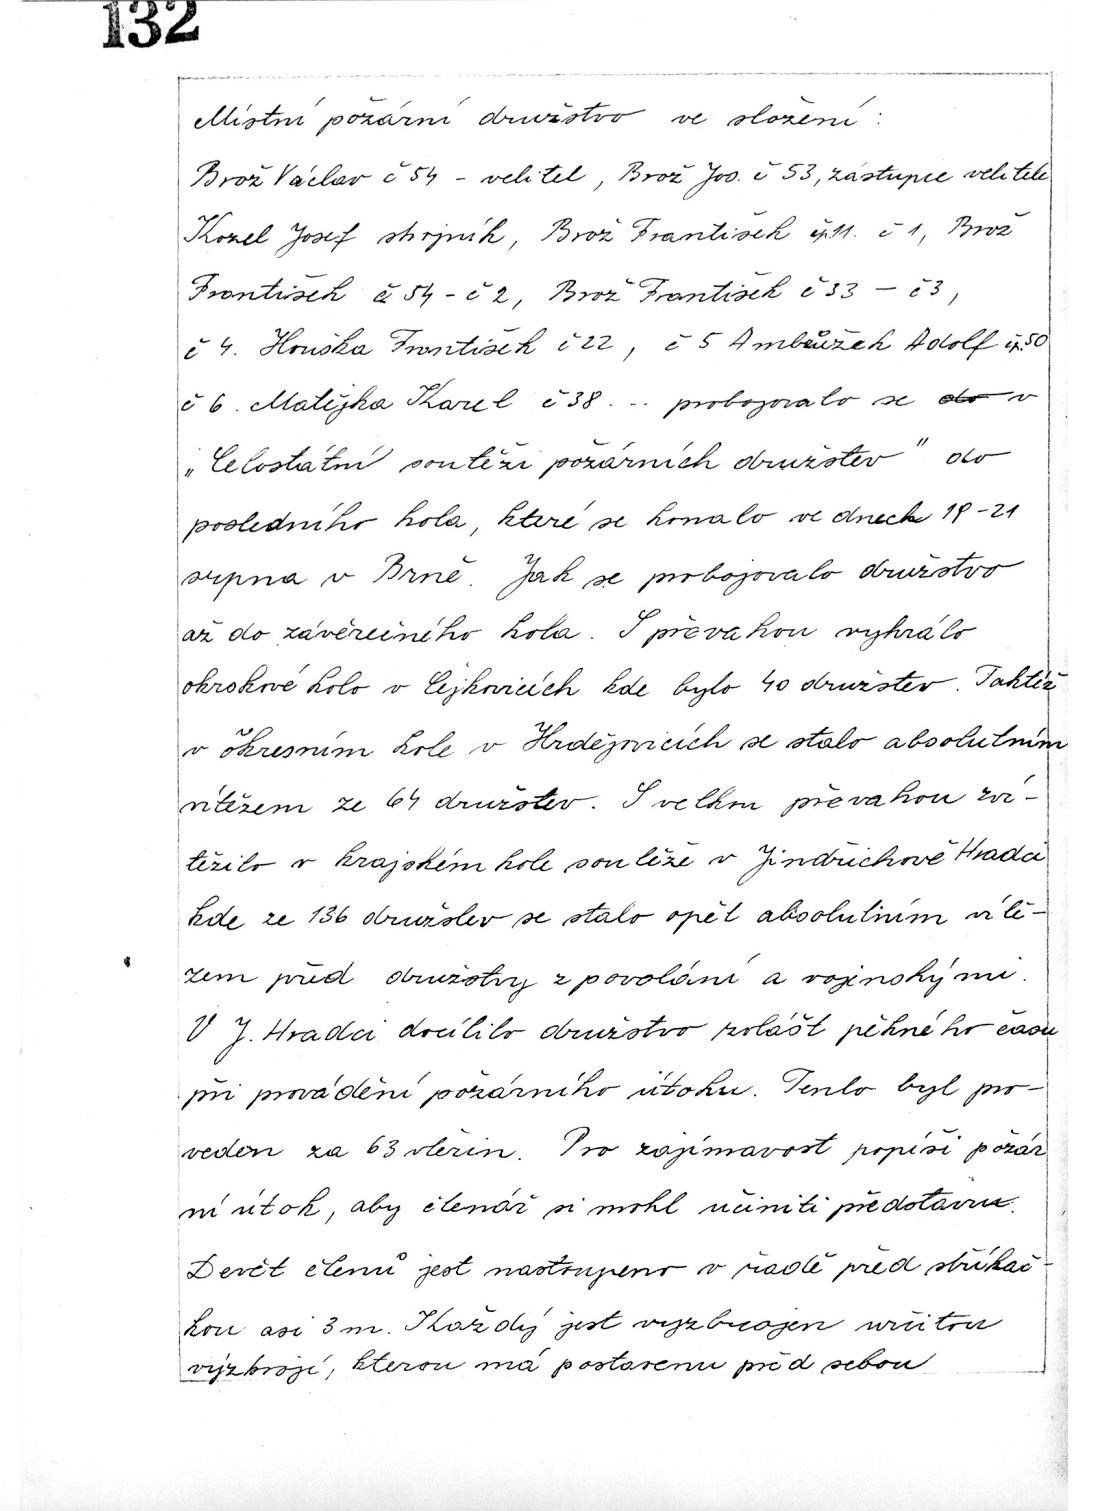 132
Místní požární družstvo ve složení :
Brož Václav č 54 - velitel, Brož Jos. č 53, zástupce velitele
Kozel Josef strojník, Brož František čp.11. č 1, Brož
František č 54 - č 2, Brož František č 33 - č 3,
č 4. Houška František č 22, č 5 Ambrůžek Adolf čp.50
č 6. Matějka Karel č 38 ... probojovalo se do v
„Celostátní soutěži požárních družstev" do
posledního kola, které se konalo ve dnech 19-21
srpna v Brně. Jak se probojovalo družstvo
až do závěrečného kola. S převahou vyhrálo
okrskové kolo v Čejkovicích kde bylo 40 družstev. Taktéž
v okresním kole v Hrdějovicích se stalo absolutním
vítězem ze 64 družstev. S velkou převahou zví-
tězilo v krajském kole soutěže v Jindřichově Hradci
kde ze 136 družstev se stalo opět absolutním vítě-
zem před družstvy z povolání a vojenskými.
V J. Hradci docílilo družstvo zvlášť pěkného času
při provádění požárního útoku. Tento byl pro-
veden za 63 vteřin. Pro zajímavost popíši požár
ní útok, aby čtenář si mohl učiniti představu.
Devět členů jest nastoupeno v řadě před stříkač-
kou asi 3 m. Každý jest vyzbrojen určitou
výzbrojí, kterou má postavenu před sebou